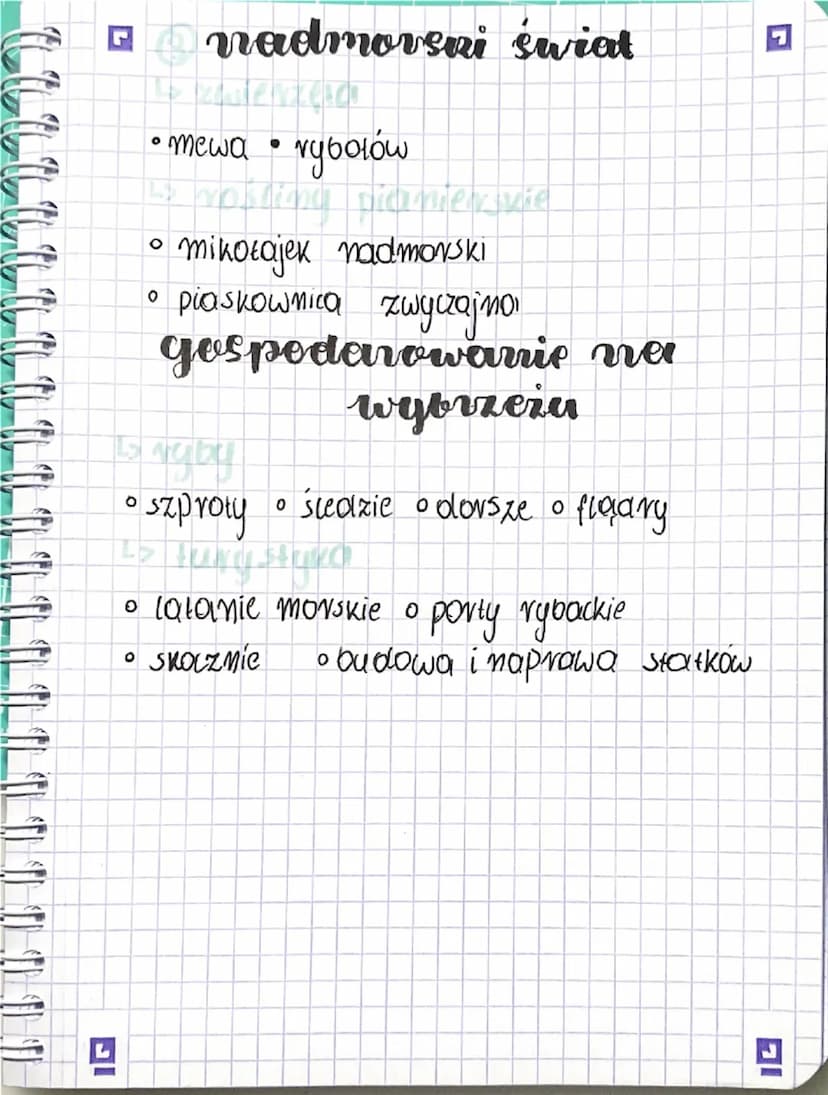 ③ nadmorski świat
↳ zwierzęta
• mewa • rybołów
↳ rośliny pionierskie
• mikołajek nadmorski
• piaskownica zwyczajna
gospodarowanie na
wybrzeżu
↳ ryby
• szproty • śledzie • dorsze • flądry
↳ turystyka
• latanie morskie • porty rybackie
• skocznie • budowa i naprawa statków